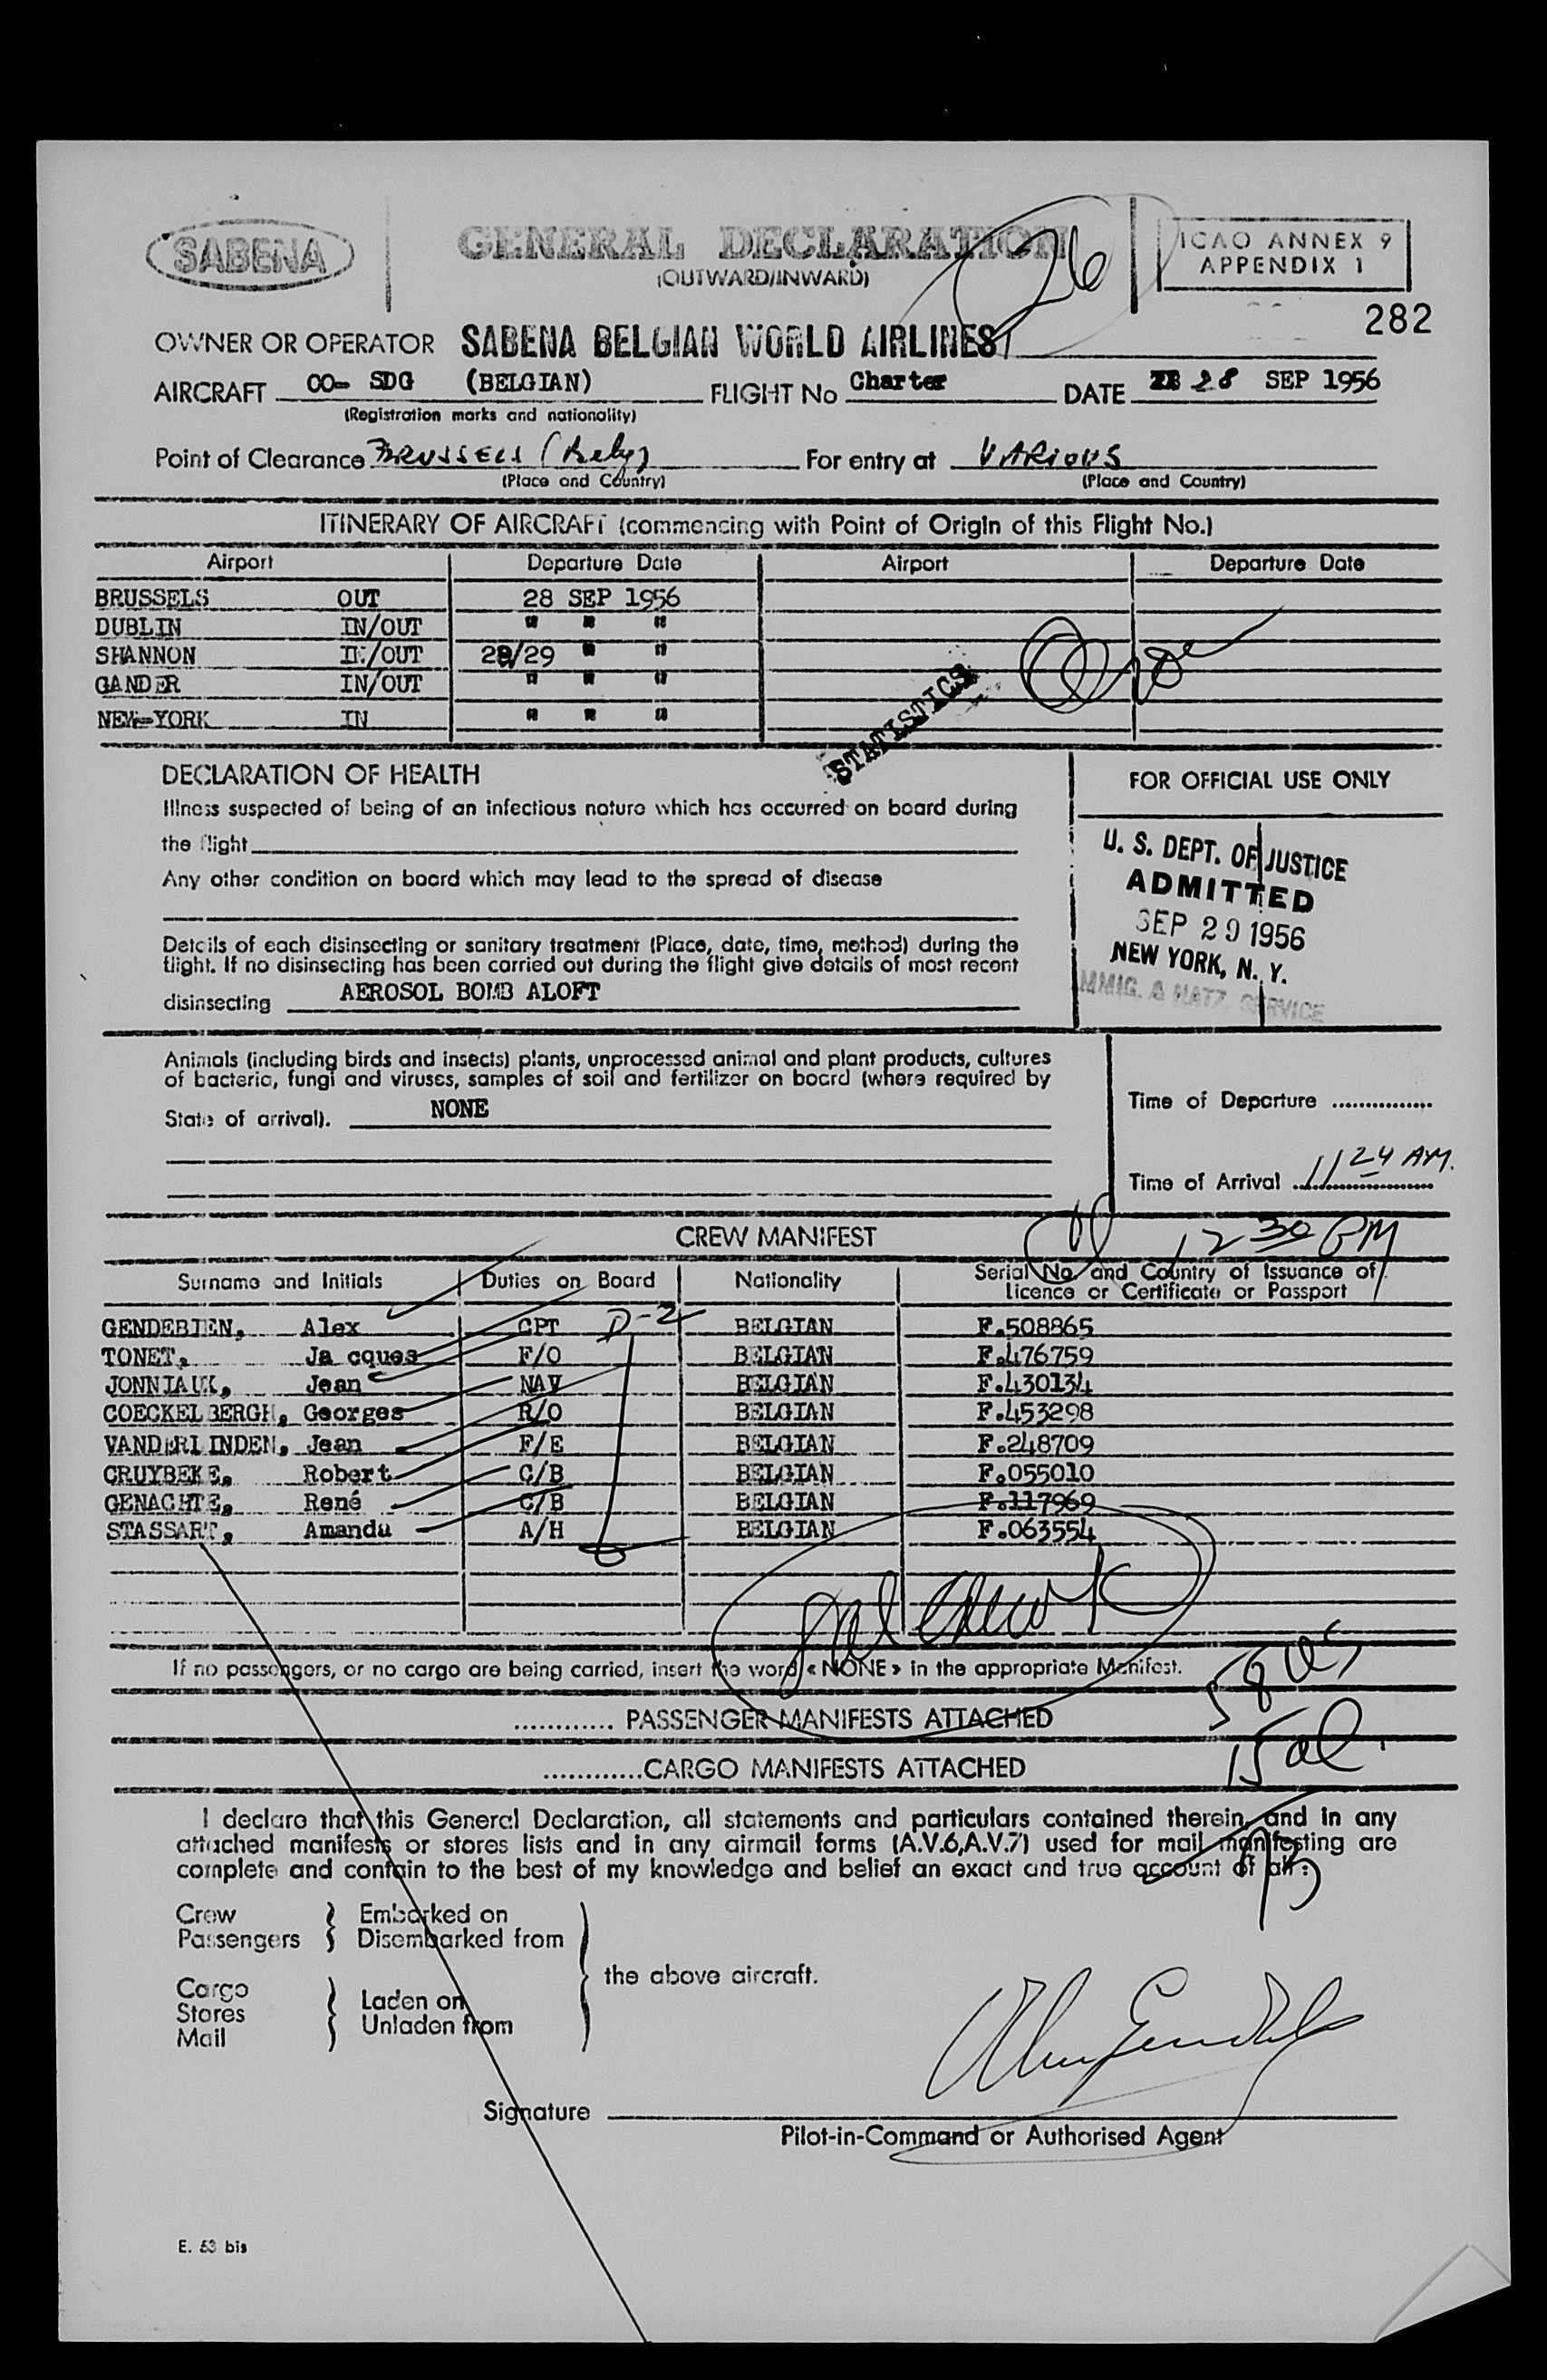 SABENA
GENERAL DECLARATION
(OUTWARD/INWARD)
26
ICAO ANNEX 9
APPENDIX 1
282
OWNER OR OPERATOR SABENA BELGIAN WORLD AIRLINES
AIRCRAFT OO- SDG (BELGIAN) FLIGHT No Charter DATE 28 SEP 1956
(Registration marks and nationality)
Point of Clearance BRUSSELS (Belg) For entry at VARIOUS
(Place and Country) (Place and Country)
ITINERARY OF AIRCRAFT (commencing with Point of Origin of this Flight No.)
Airport Departure Date Airport Departure Date
BRUSSELS OUT 28 SEP 1956
DUBLIN IN/OUT " " "
SHANNON IN/OUT 28/29 " "
GANDER IN/OUT " " "
NEW-YORK IN " " "
STATISTICS
DECLARATION OF HEALTH
Illness suspected of being of an infectious nature which has occurred on board during
the flight
Any other condition on board which may lead to the spread of disease
Details of each disinsecting or sanitary treatment (Place, date, time, method) during the
flight. If no disinsecting has been carried out during the flight give details of most recent
disinsecting AEROSOL BOMB ALOFT
FOR OFFICIAL USE ONLY
U. S. DEPT. OF JUSTICE
ADMITTED
SEP 29 1956
NEW YORK, N. Y.
IMMIG. & NATZ. SERVICE
Animals (including birds and insects) plants, unprocessed animal and plant products, cultures
of bacteria, fungi and viruses, samples of soil and fertilizer on board (where required by
State of arrival). NONE
Time of Departure ...............
Time of Arrival 11 24 AM.
12 30 PM
CREW MANIFEST
Surname and Initials Duties on Board Nationality Serial No. and Country of Issuance of
Licence or Certificate or Passport
GENDEBIEN, Alex CPT D-2 BELGIAN F.508865
TONET, Ja cques F/O BELGIAN F.476759
JONNIAUX, Jean NAV BELGIAN F.430134
COECKELBERGH, Georges R/O BELGIAN F.453298
VANDERLINDEN, Jean F/E BELGIAN F.248709
CRUYBEKE, Robert C/B BELGIAN F.055010
GENACHTE, René C/B BELGIAN F.117969
STASSART, Amanda A/H BELGIAN F.063554
If no passengers, or no cargo are being carried, insert the word « NONE » in the appropriate Manifest.
............. PASSENGER MANIFESTS ATTACHED
............CARGO MANIFESTS ATTACHED
I declare that this General Declaration, all statements and particulars contained therein, and in any
attached manifests or stores lists and in any airmail forms (A.V.6,A.V.7) used for mail manifesting are
complete and contain to the best of my knowledge and belief an exact and true account of all :
73
Crew } Embarked on
Passengers } Disembarked from
the above aircraft.
Cargo
Stores } Laden on
Mail } Unladen from
Signature
Pilot-in-Command or Authorised Agent
E. 53 bis